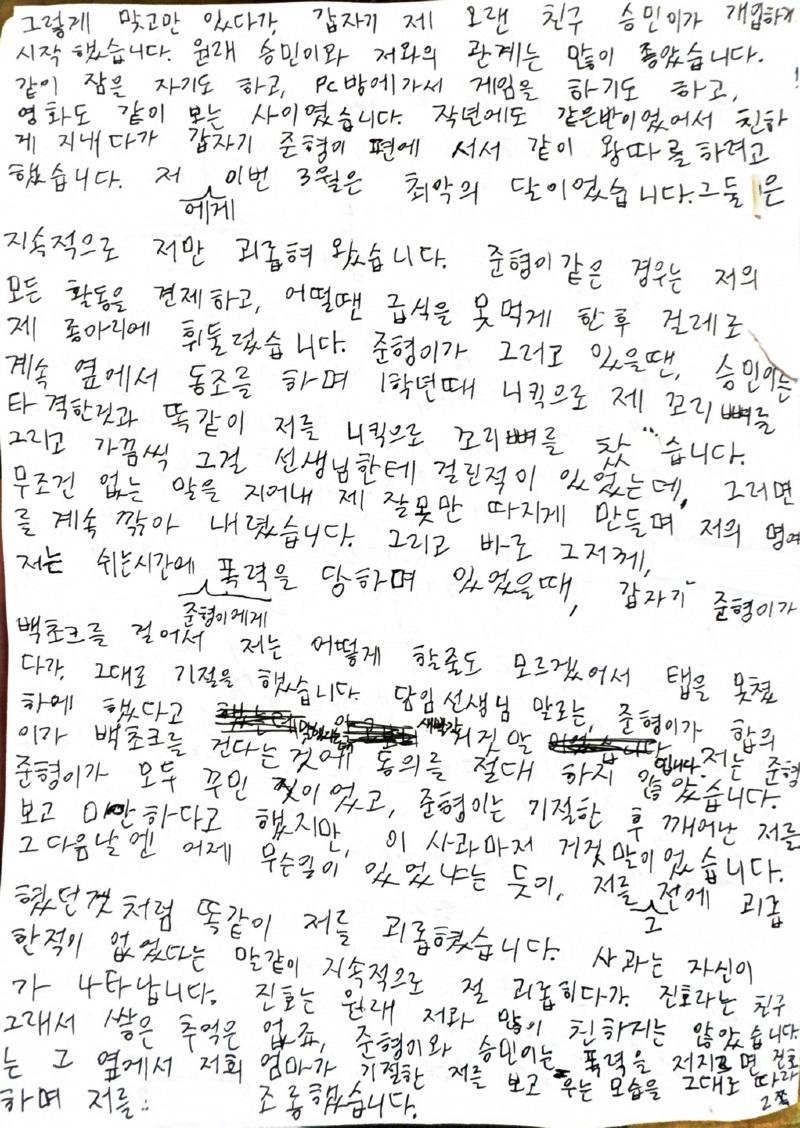 그렇게 맞고만 있다가, 갑자기 제 오랜 친구 승민이가 개입하기
시작 했습니다. 원래 승민이와 저와의 관계는 많이 좋았습니다.
같이 잠을 자기도 하고, PC방에가서 게임을 하기도 하고,
영화도 같이 보는 사이였습니다. 작년에도 같은반이었어서 친하
게 지내다가 갑자기 준형이 편에 서서 같이 왕따를 하려고
했습니다. 저 이번 3월은 최악의 달이었습니다. 그들은
에게
지속적으로 저만 괴롭혀 왔습니다. 준형이같은 경우는 저의
모든 활동을 견제하고, 어떨땐 급식을 못먹게 한후 걸레로
제 종아리에 휘둘렀습니다. 준형이가 그러고 있을땐, 승민이는
계속 옆에서 동조를 하며 1학년때 니킥으로 제 꼬리뼈를
타격한것과 똑같이 저를 니킥으로 꼬리뼈를 찼습니다.
그리고 가끔씩 그걸 선생님한테 걸린적이 있었는데, 그러면
무조건 없는 말을 지어내 제 잘못만 따지게 만들며 저의 명예
를 계속 깎아 내렸습니다. 그리고 바로 그저께,
저는 쉬는시간에 폭력을 당하며 있었을때, 갑자기 준형이가
준형이에게
백초크를 걸어서 저는 어떻게 할줄도 모르겠어서 탭을 못쳤
다가 그대로 기절을 했습니다. 담임선생님 말로는, 준형이가 합의
하에 했다고 거짓말 입니다. 저는 준형
이가 백초크를 건다는것에 동의를 절대 하지 않았습니다.
준형이가 모두 꾸민 짓이었고, 준형이는 기절한 후 깨어난 저를
보고 미안하다고 했지만, 이 사과마저 거짓말이었습니다.
그다음날엔 어제 무슨일이 있었냐는 듯이, 저를 전에 괴롭
그
혔던것처럼 똑같이 저를 괴롭혔습니다. 사과는 자신이
한적이 없었다는 말같이 지속적으로 절 괴롭히다가 진호라는 친구
가 나타납니다. 진호는 원래 저와 많이 친하지는 않았습니다.
그래서 쌓은 추억은 없죠, 준형이와 승민이는 폭력을 저지르면 진호
는 그 옆에서 저희 엄마가 기절한 저를 보고 우는 모습을 그대로 따라
하며 저를 조롱했습니다.